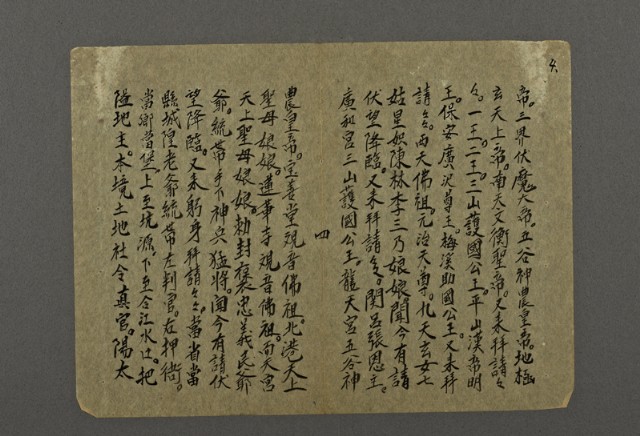 4
帝。三界伏魔大帝。五谷神農皇帝。地極
玄天上帝。南天文衡聖帝。又來拜請々
々。一王。二王。三山護國公王。平山漢帝明
王。保安廣沢尊王。梅溪助國公王。又來拜
請々。西天佛祖。元治天尊。九天玄女七
姑星娘陳林李三乃娘娘聞今有請
伏望降臨。又來拜請々。関呂張恩主。
廣和宮三山護國公王。龍天宮五谷神
四
農皇帝。宝善堂观音佛祖。北港天上
聖母娘娘。蓮峯寺观音佛祖。西天宮
天上聖母娘娘。勅封褒忠義民爺
爺。統帶手下神兵猛將。聞今有請伏
望降臨。又來躬身拜請々。當省當
縣城隍老爺統帶左判官。右押衙。
當鄉當堡上至坑源下至合江水口。把
隘地主。本境土地社令真官。陽太